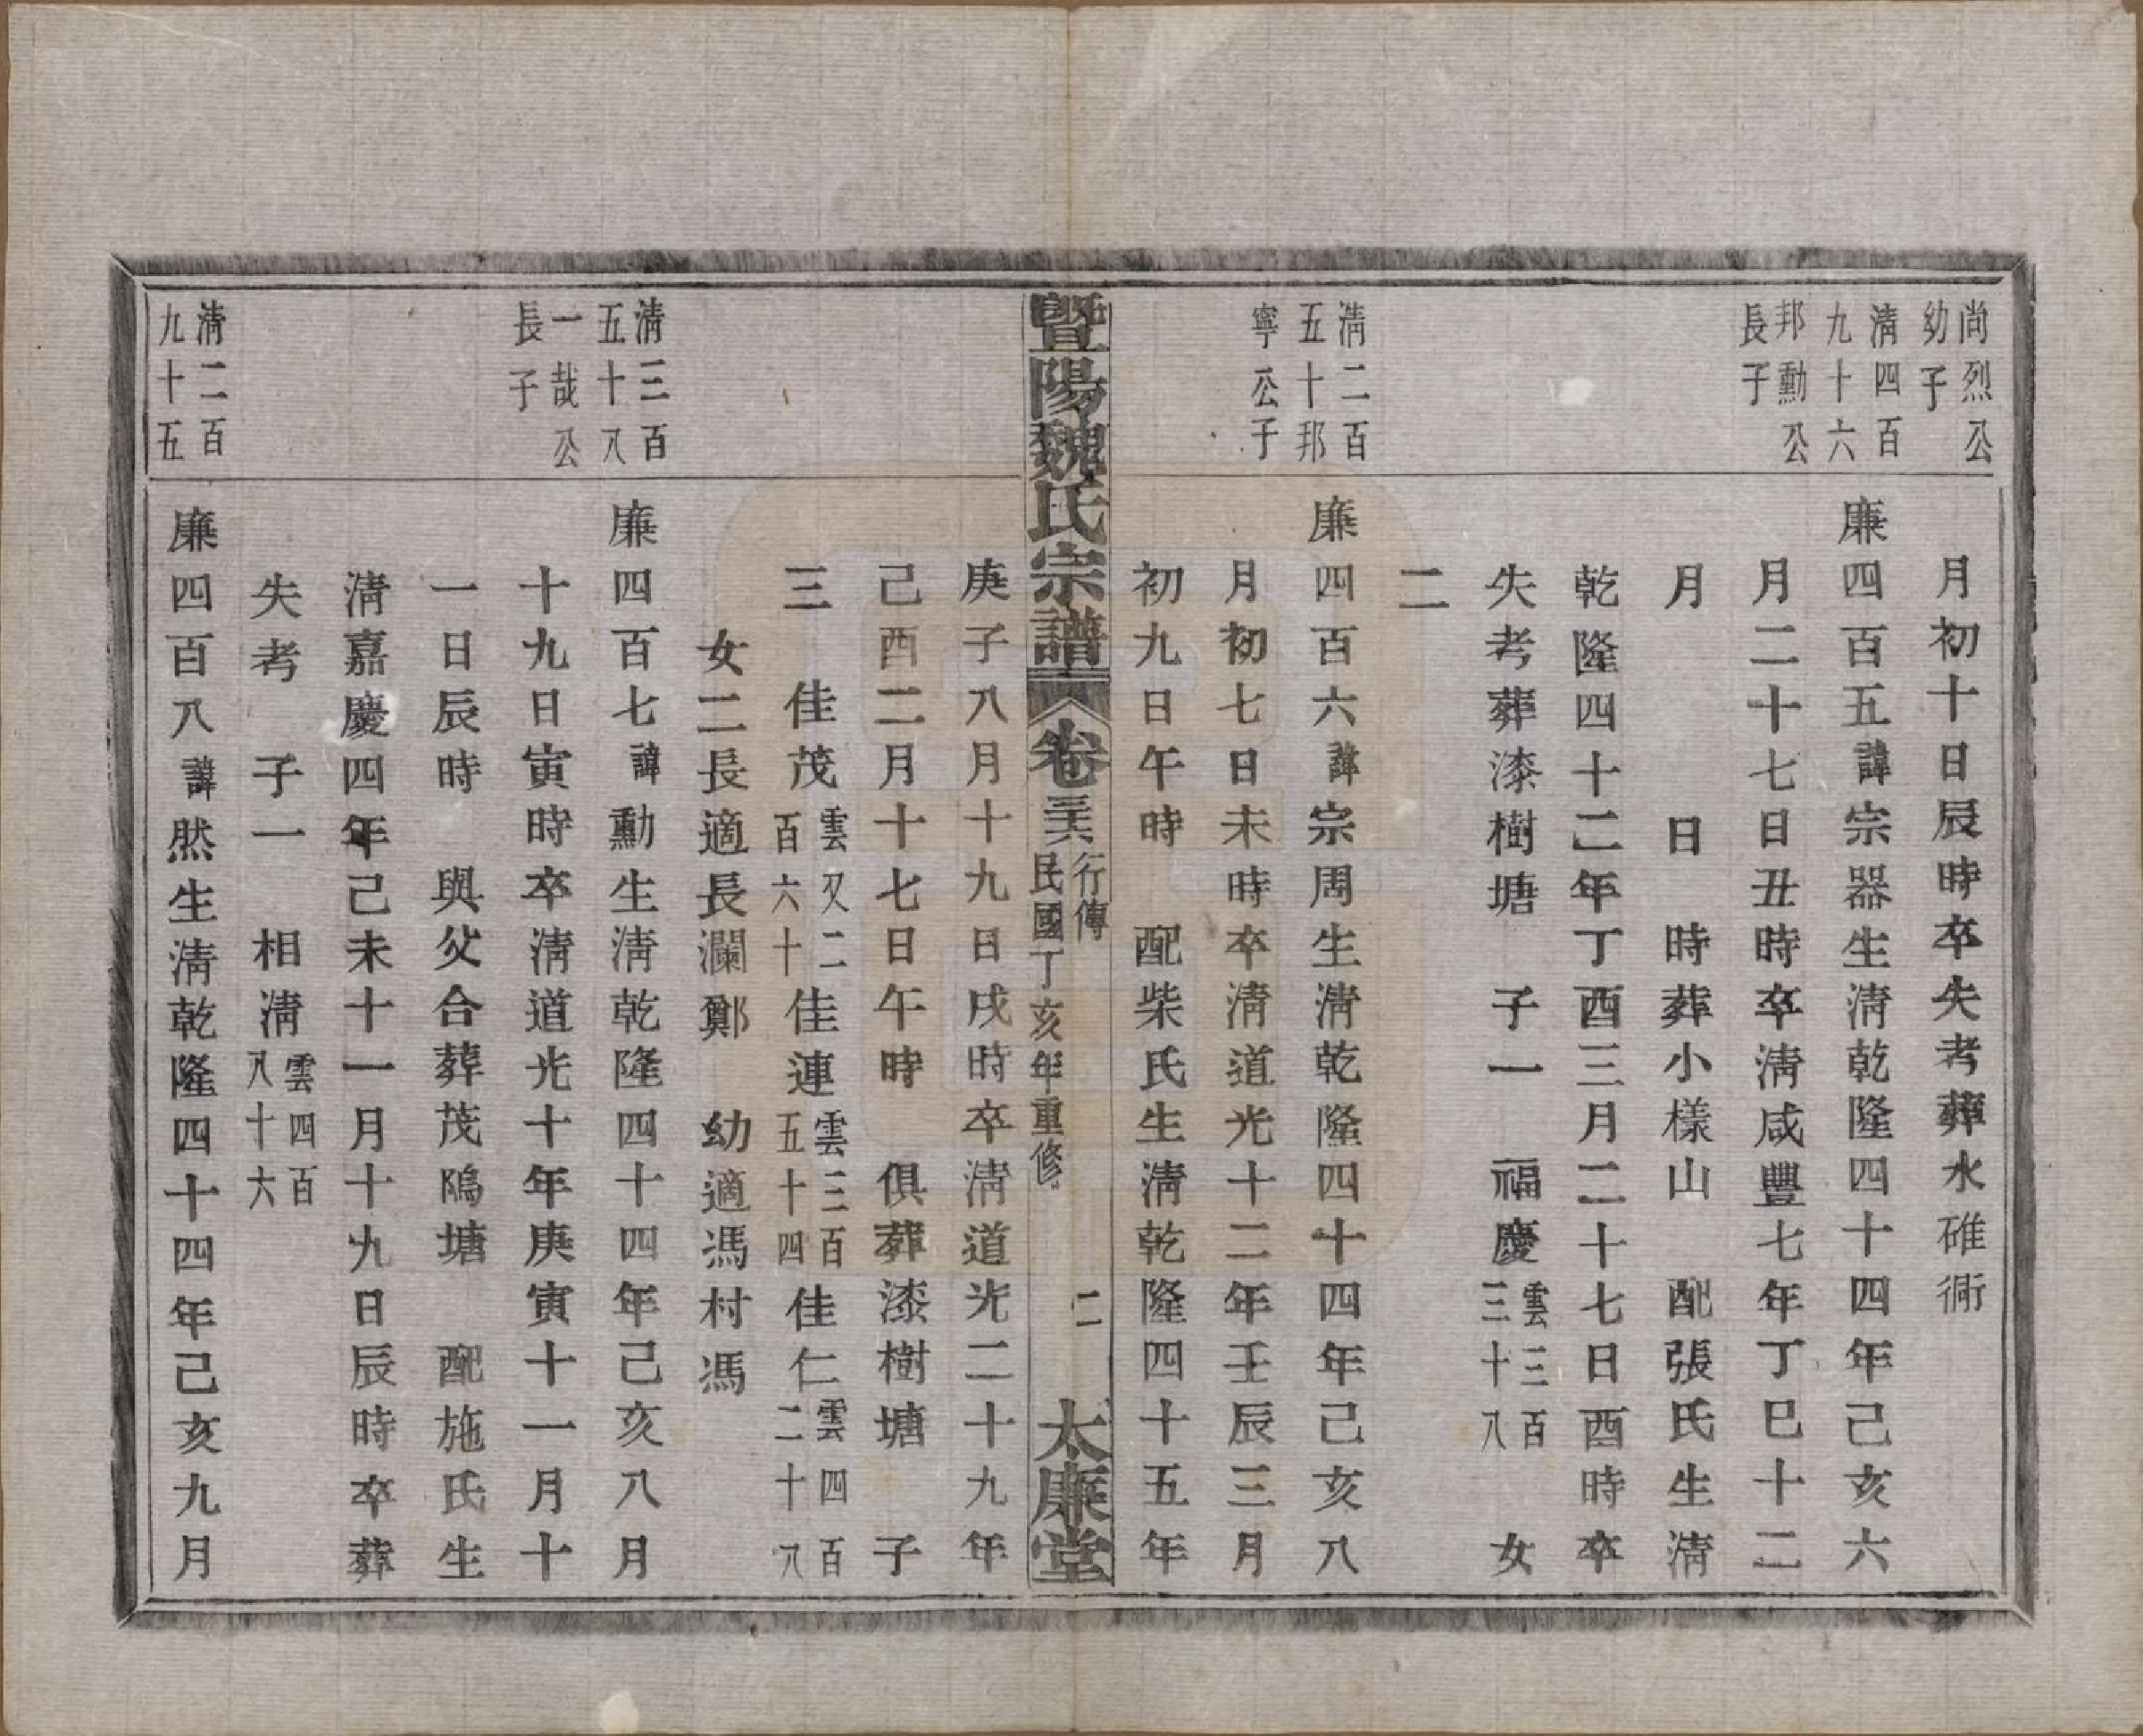 尚烈公
幼子
月初十日辰時卒失考葬水碓衕
清四百
九十六
邦勳公
長子
廉四百五諱宗器生清乾隆四十四年己亥六
月二十七日丑時卒清咸豐七年丁巳十二
月　日　時葬小樣山　配張氏生清
乾隆四十二年丁酉三月二十七日酉時卒
失考葬漆樹塘　子一　福慶雲三百三十八　女
二
清二百
五十邦
寧公子
廉四百六諱宗周生清乾隆四十四年己亥八
月初七日未時卒清道光十二年壬辰三月
初九日午時　配柴氏生清乾隆四十五年
暨陽魏氏宗譜　卷三六　行傳　民國丁亥年重修　二　太廉堂
庚子八月十九日戌時卒清道光二十九年
己酉二月十七日午時　俱葬漆樹塘　子
三　佳茂雲又二百六十　佳連雲三百五十四　佳仁雲四百二十八
女二長適長瀾鄭　幼適馮村馮
清三百
五十八
一哉公
長子
廉四百七諱勳生清乾隆四十四年己亥八月
十九日寅時卒清道光十年庚寅十一月十
一日辰時　與父合葬茂隝塘　配施氏生
清嘉慶四年己未十一月十九日辰時卒葬
失考　子一　相清雲四百八十六
清二百
九十五
廉四百八諱然生清乾隆四十四年己亥九月